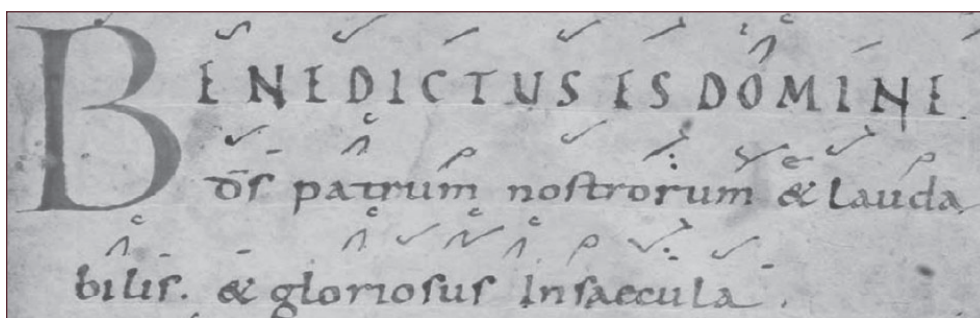 BENEDICTUS ES DOMINE.
d̄s patrum nostrorum & lauda
bilis. & gloriosus Insaecula.